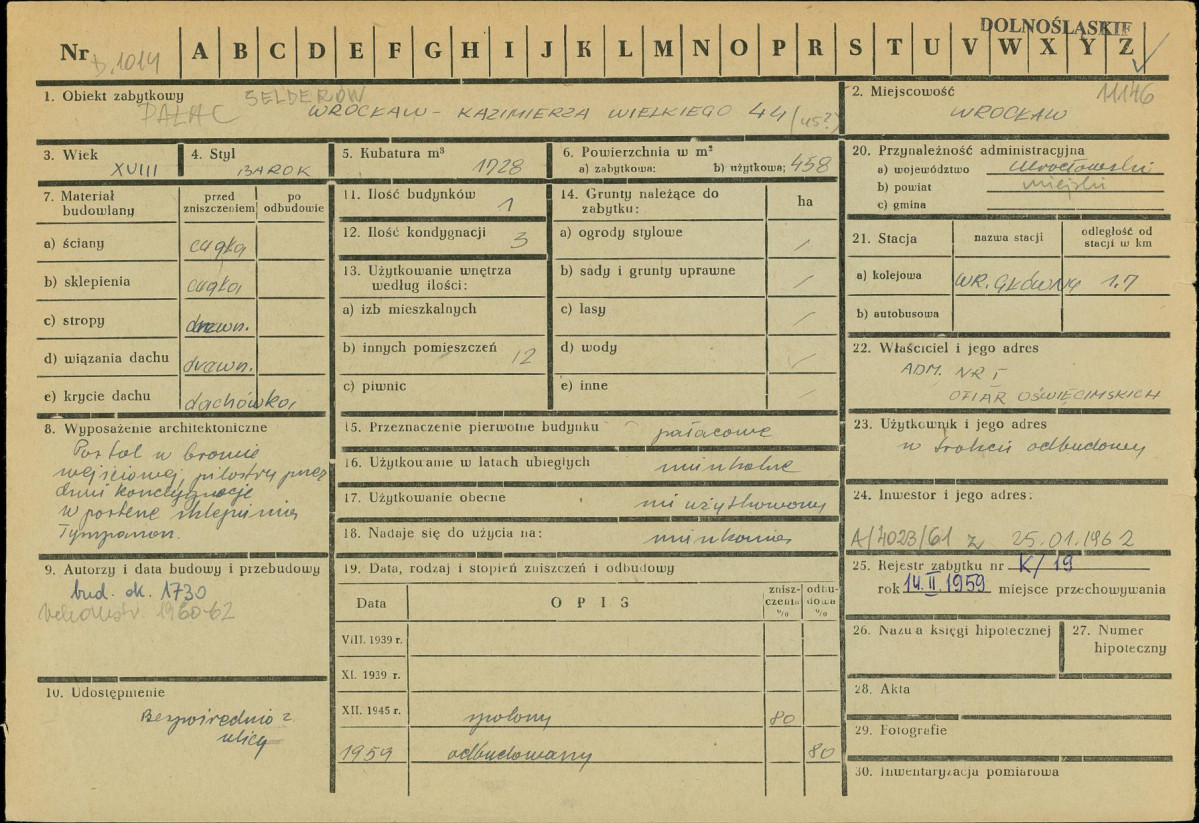 DOLNOŚLĄSKIE
Nr D.1014 A B C D E F G H I J K L M N O P R S T U V W X Y Z
11146
1. Obiekt zabytkowy
PAŁAC SELDERÓW
WROCŁAW - KAZIMIERZA WIELKIEGO 44 (45?)
2. Miejscowość
WROCŁAW
3. Wiek
XVIII
4. Styl
BAROK
5. Kubatura m³
1728
6. Powierzchnia w m²
a) zabytkowa: b) użytkowa: 458
7. Materiał budowlany
przed zniszczeniem
po odbudowie
a) ściany cegła
b) sklepienia cegła
c) stropy drewn.
d) wiązania dachu drewn.
e) krycie dachu dachówka
8. Wyposażenie architektoniczne
Portal w bramie
wejściowej pilastry przez
dwie kondygnacje
w parterze sklepienia
Tympanon.
9. Autorzy i data budowy i przebudowy
bud. ok. 1730
1960-62
10. Udostępnienie
Bezpośrednio z
ulicy
11. Ilość budynków 1
12. Ilość kondygnacji 3
13. Użytkowanie wnętrza
według ilości:
a) izb mieszkalnych
b) innych pomieszczeń 12
c) piwnic
14. Grunty należące do
zabytku:
ha
a) ogrody stylowe /
b) sady i grunty uprawne /
c) lasy /
d) wody
e) inne /
15. Przeznaczenie pierwotne budynku pałacowe
16. Użytkowanie w latach ubiegłych mieszkalne
17. Użytkowanie obecne nie użytkowany
18. Nadaje się do użycia na: mieszkania
19. Data, rodzaj i stopień zniszczeń i odbudowy
Data OPIS zniszczenia % odbudowa %
VIII. 1939 r.
XI. 1939 r.
XII. 1945 r. spalony 80
1959 odbudowany 80
20. Przynależność administracyjna
a) województwo wrocławski
b) powiat miejski
c) gmina
21. Stacja nazwa stacji odległość od stacji w km
a) kolejowa WR. GŁÓWNY 1.7
b) autobusowa
22. Właściciel i jego adres
ADM. NR I
OFIAR OŚWIĘCIMSKICH
23. Użytkownik i jego adres
w trakcie odbudowy
24. Inwestor i jego adres:
A/4023/61 z 25.01.1962
25. Rejestr zabytku nr K/19
rok 14.II.1959 miejsce przechowywania
26. Nazwa księgi hipotecznej
27. Numer hipoteczny
28. Akta
29. Fotografie
30. Inwentaryzacja pomiarowa